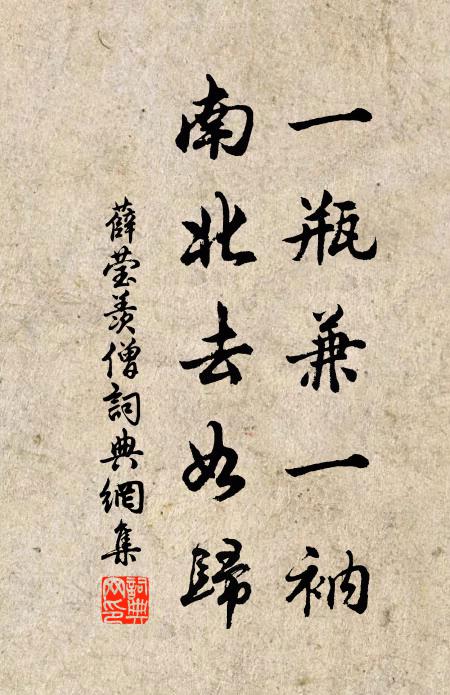 一瓶兼一衲
南北去如歸
薛瑩羨僧詞典網集
詞典